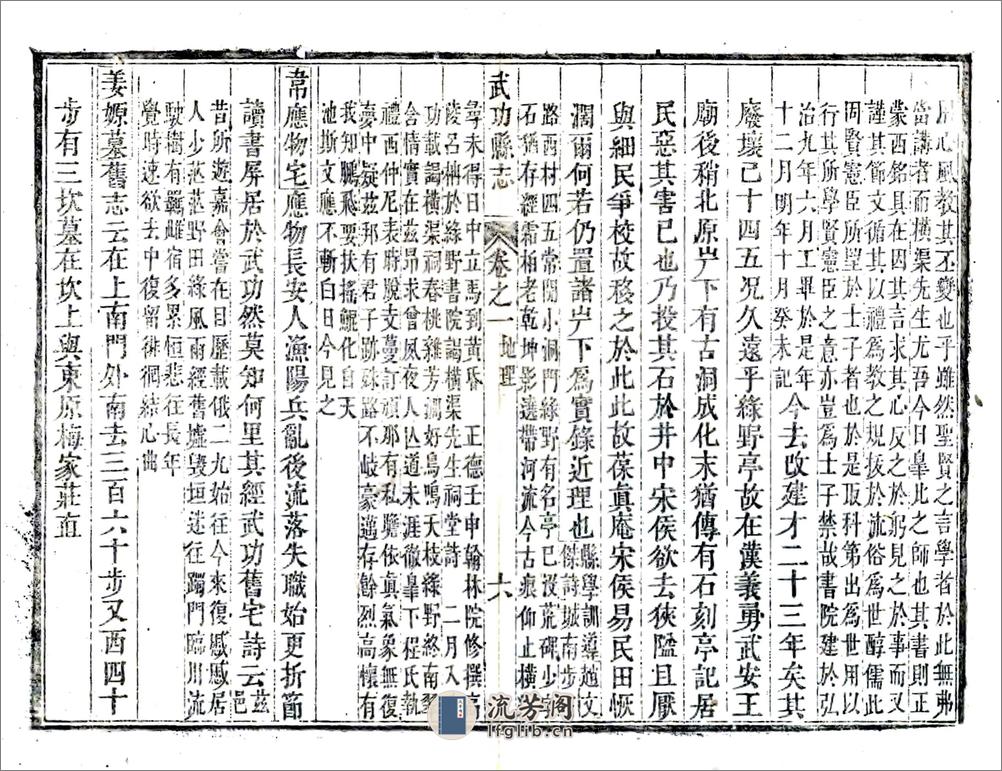 心風教其丕變也乎雖然聖賢之言學者於此無弗
當講者而橫渠先生尤吾今日臯比之師也其書則正
蒙西銘具在因其言求其心反之於躬見之於事而又
謹其節文循其以禮爲教之規拔於流俗爲世醇儒此
周賢憲臣所望於士子者也於是取科第出爲世用以
行其所學賢憲臣之意亦豈爲士子禁故書院建於弘
治九年六月工畢於是年
十二月明年十月癸未記今去改建才二十三年矣其
廢壞已十四五况久遠乎綠野亭故在漢義勇武安王
廟後稍北原岸下有古洞成化末猶傳有石刻亭記居
民惡其害已也乃投其石於井中宋侯欲去狹隘且厭
與細民爭校故移之於此此故葆眞庵宋侯易民田恢
濶爾何若仍置諸岸下爲實錄近理也縣學訓導趙文
傑詩城南步
路西村四五常閒小洞門綠野有名亭已沒荒碑少
石猶存經霜柏老乾坤影遶帶河流今古痕仰止橫
武功縣志
卷之一地理
六
尋未得日中立馬到黃昏 正德壬申翰林院修撰高
陵呂柟於綠野書院謁橫渠先生祠堂詩 二月入
功載謁橫渠祠春桃雜芳澗好鳥鳴天枝綠野終南翠
含情實在兹昻未曾夙夜人亾道未涯徹臯下程氏執
禮西仲尼表時脫支蔓訂頑那有私贍依眞氣象無復
夢中疑兹邦有君子跡殊路不岐豪邁存餘烈高懷有
我知鵬飛要扶搖鯤化自天
池斯文應不斬白日今見之
韋應物宅應物長安人漁陽兵亂後流落失職始更折節
讀書屏居於武功然莫知何里其經武功舊宅詩云兹邑
昔所遊嘉會常在目歷載俄二九始往今來復慼慼居
人少茫茫野田綠風雨經舊墟毀垣迷往躅門臨川流
駛樹有羈雌宿多累恒悲往長年
覺時速欲去中復留徘徊結心曲
姜嫄墓舊志云在上南門外南去三百六十步又西四十
步有三坎墓在坎上與東原梅家莊直
流芳阁
lfglib.cn